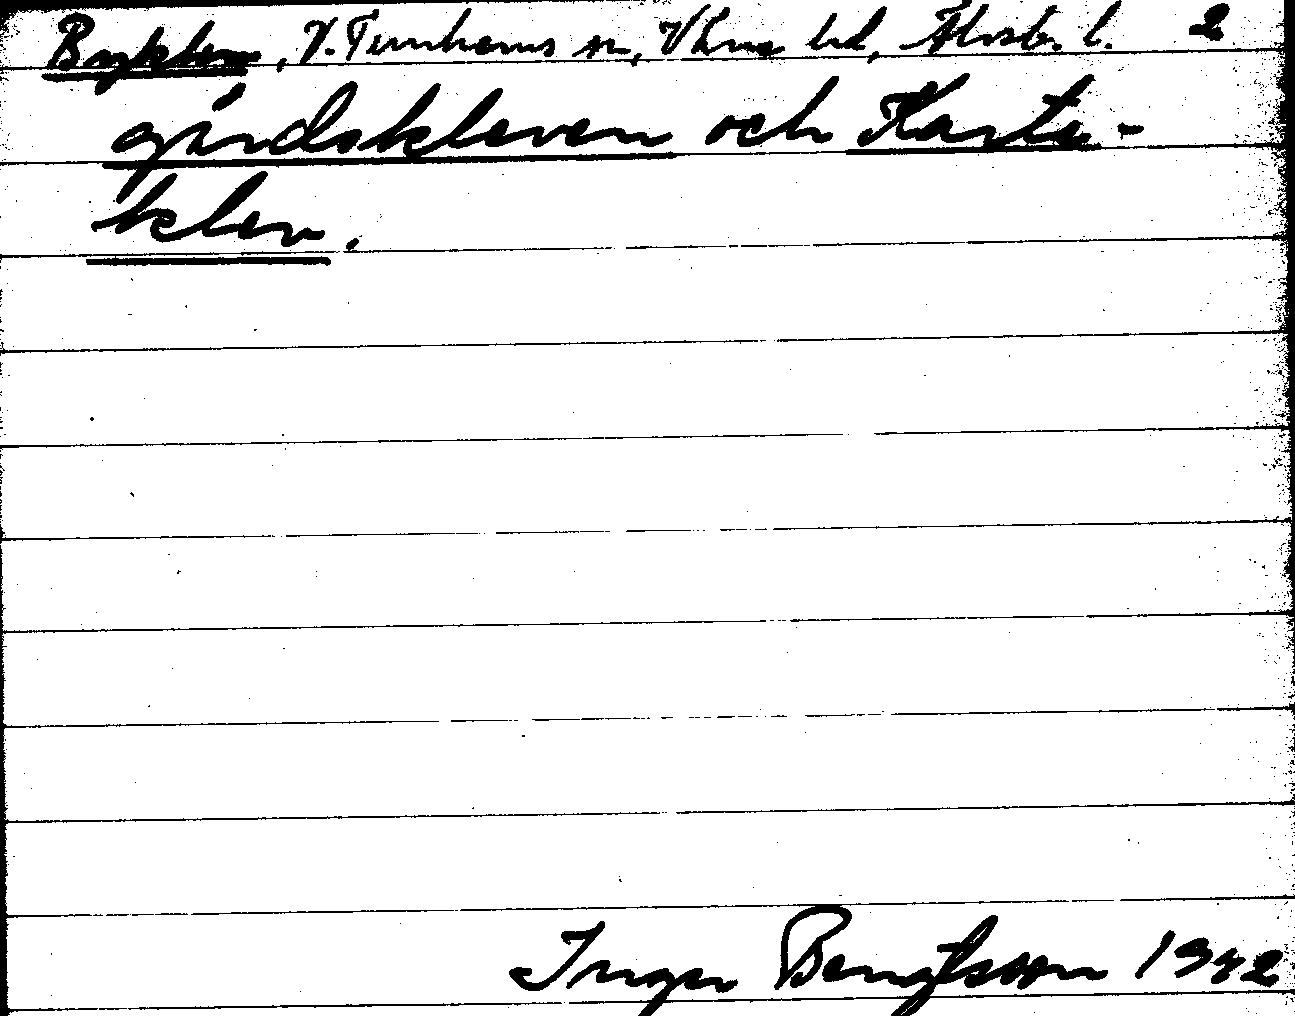 Bykleven, V. Tunhems sn, Väne hd, Älvsb. l. 2
gårdskleven och Karta-
klev.
Inger Bengtsson 1942